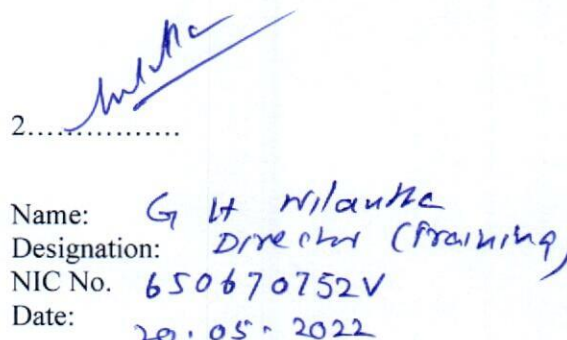 2................
Name: G H Nilantha
Designation: Director (Training)
NIC No. 650670752V
Date: 20.05.2022